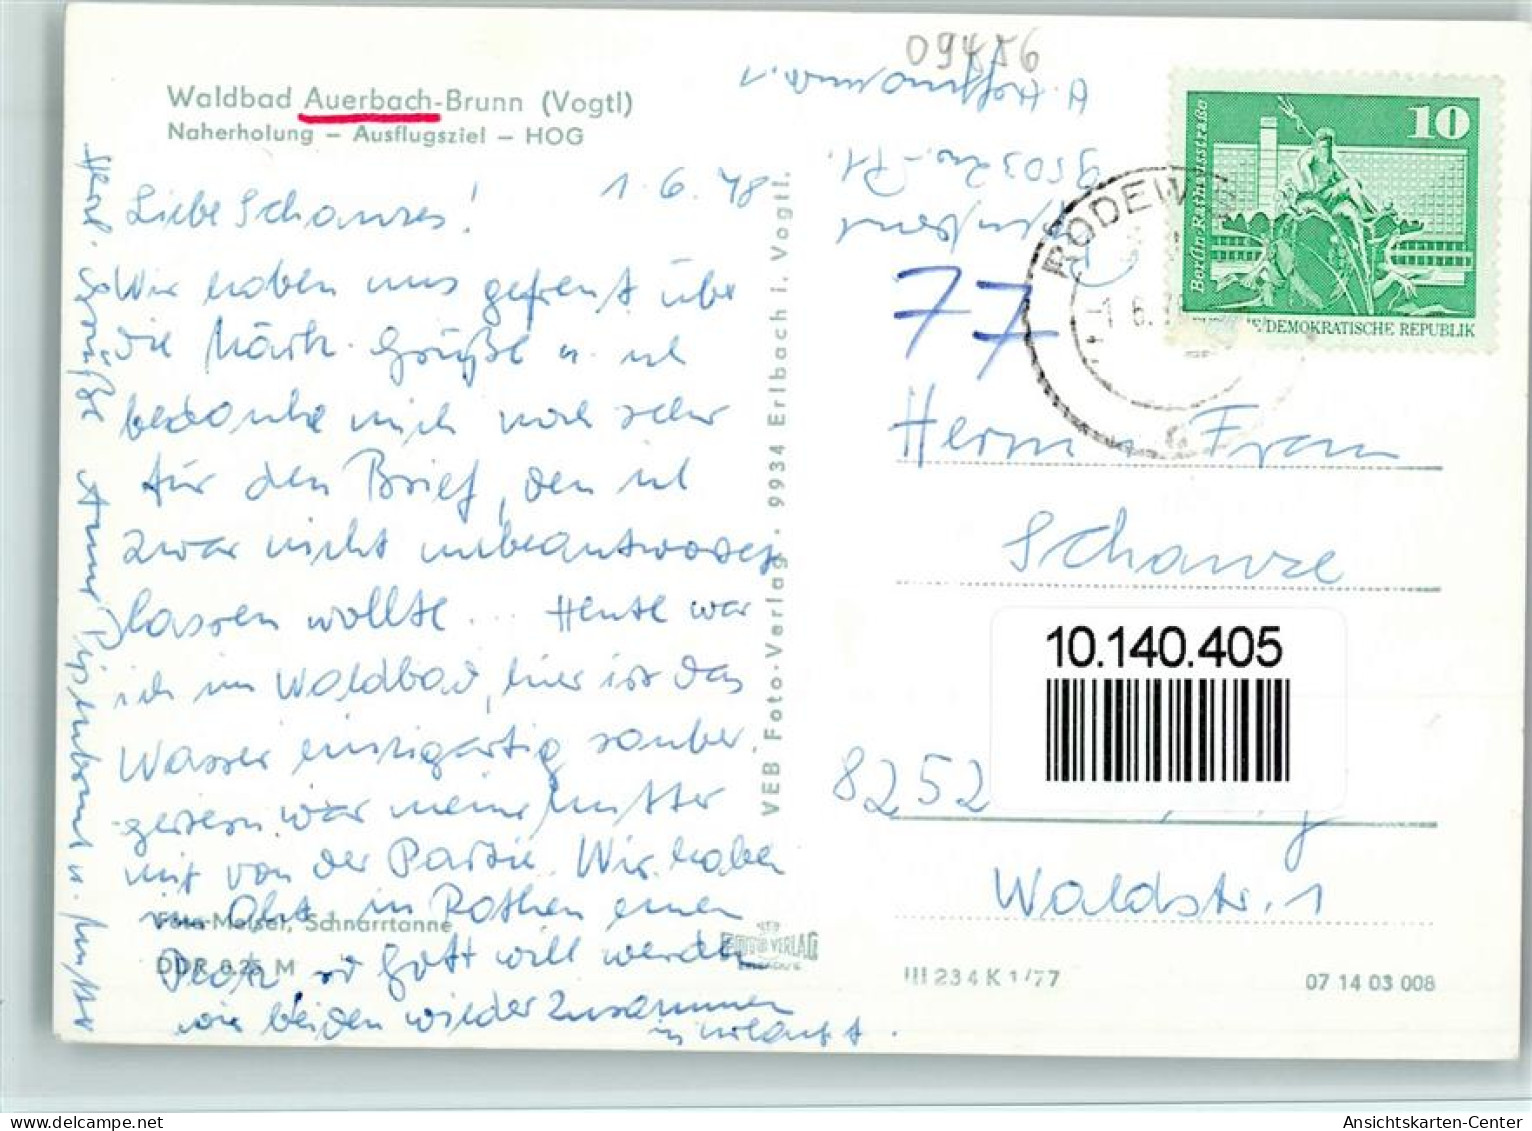 Waldbad Auerbach-Brunn (Vogtl)
Naherholung – Ausflugsziel – HOG
1. 6. 78
Liebe Schanzes!
Wir haben uns gefreut über
die Grüße u. ich
bedanke mich noch sehr
für den Brief, den ich
zwar nicht unbeantwortet
lassen wollte... Heute war
ich im Waldbad, hier ist das
Wasser einzigartig sauber.
gestern war meine Mutter
mit von der Partie. Wir haben
im Okt. in Rathen einen
Platz, so Gott will werden
wir beiden wieder zusammen
in Urlaub f.
Herzl. Grüße
u. Mutter
Foto-Meisel, Schnarrtanne
DDR 0,25 M
VEB Foto-Verlag · 9934 Erlbach i. Vogtl.
FOTO VERLAG
ERLBACH
III 23 4 K 1/77
07 14 03 008
09456
A. Hoffmann
77
RODEW
-1. 6.
10
Berlin Rathausstraße
DEMOKRATISCHE REPUBLIK
Herrn u. Frau
Schanze
10.140.405
8252
Waldstr. 1
Ansichtskarten-Center